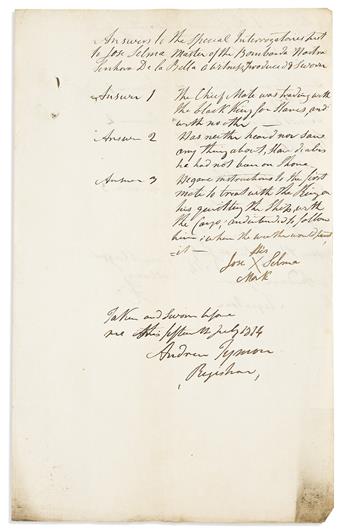 Answers to the Special Interrogatories put
to Jose Selma Master of the Bombarda Nostra
Senhora De la Bella a witness produced & sworn
Answer 1 The Chief Mate was trading with
the black King for Slaves, and
with no other
Answer 2 Has neither heard nor saw
any thing about, 
he had not been on Shore
Answer 3 He gave instructions to the first
mate to treat with the King on
his quitting the Ship, with
the Cargo, and intended to follow
him when the weather would permit
it
His
Jose X Selma
Mark
Taken and Sworn before
me this fifteenth July 1814
Andrew
Registrar